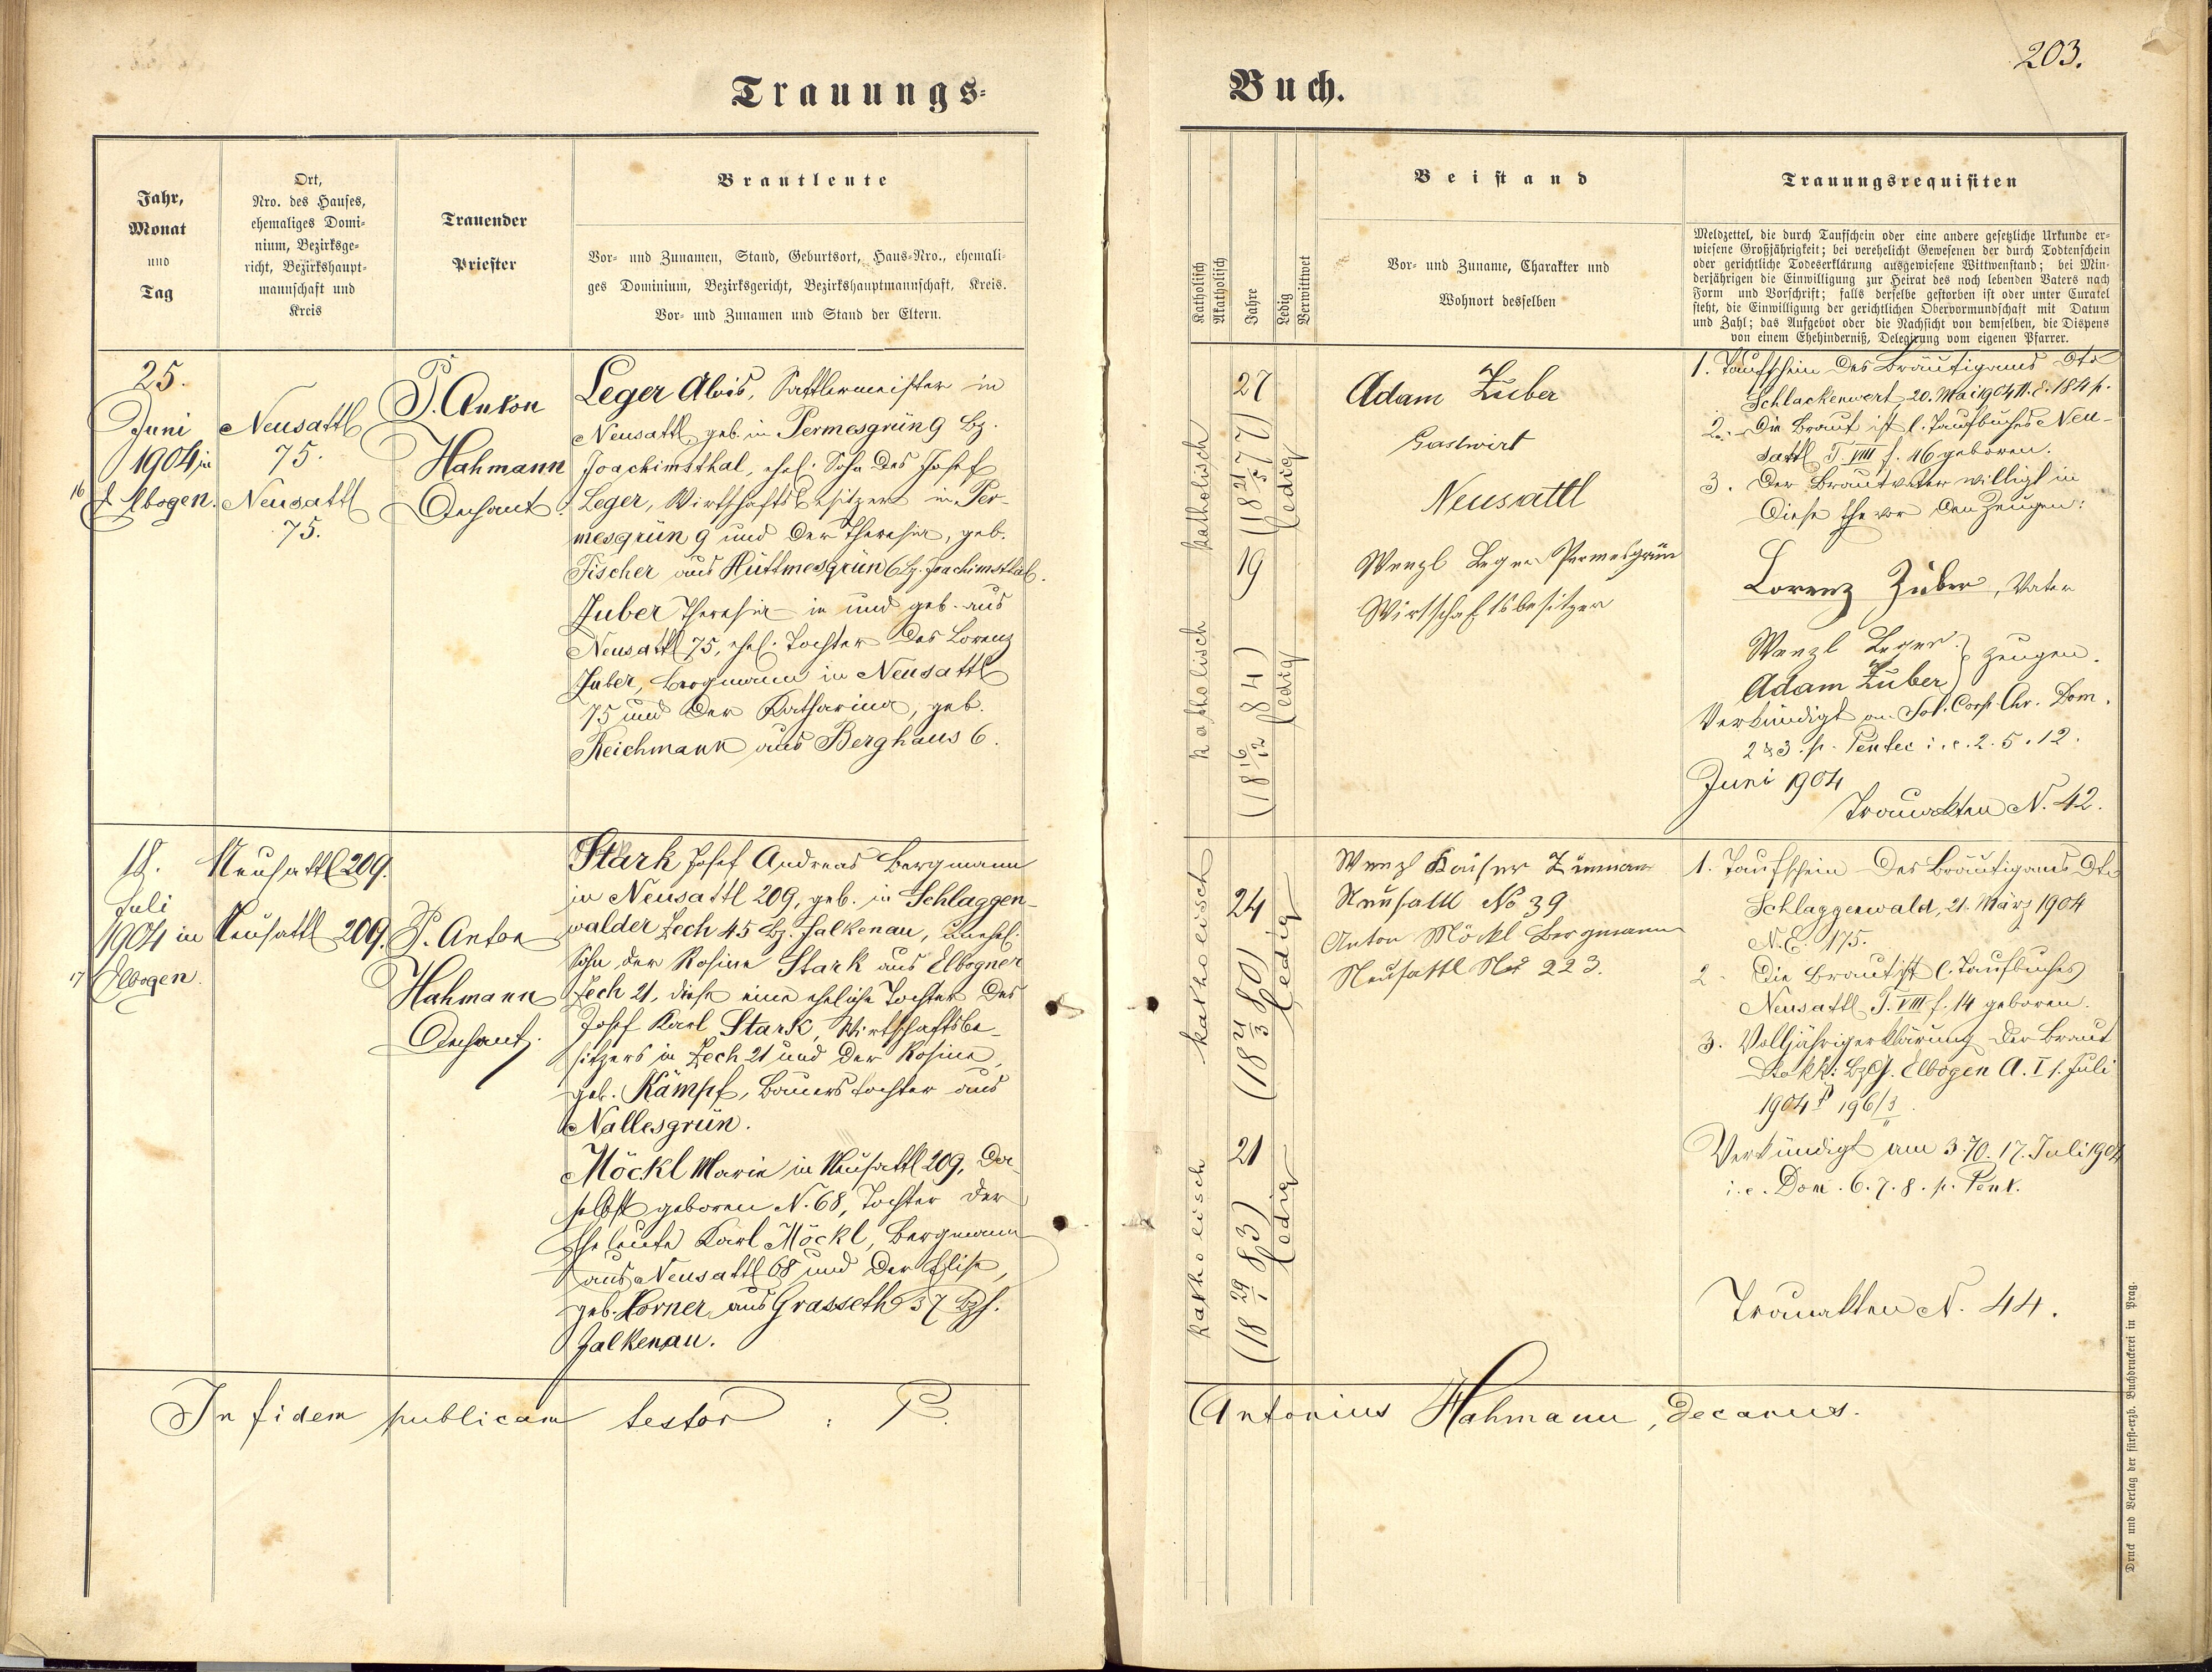 203.
Trauungs-
Buch.
Jahr,
Monat
und
Tag
Ort,
Nro. des Hauses,
ehemaliges Domi-
nium, Bezirksge-
richt, Bezirkshaupt-
mannschaft und
Kreis
Trauender
Priester
Brautleute
Vor- und Zunamen, Stand, Geburtsort, Haus-Nro., ehemali-
ges Dominium, Bezirksgericht, Bezirkshauptmannschaft, Kreis.
Vor- und Zunamen und Stand der Eltern.
Katholisch
Akatholisch
Jahre
Ledig
Verwittwet
Beistand
Vor- und Zuname, Charakter und
Wohnort desselben
Trauungsrequisiten
Meldzettel, die durch Taufschein oder eine andere gesetzliche Urkunde er-
wiesene Großjährigkeit; bei verehelicht Gewesenen der durch Todtenschein
oder gerichtliche Todeserklärung ausgewiesene Wittwenstand; bei Min-
derjährigen die Einwilligung zur Heirat des noch lebenden Vaters nach
Form und Vorschrift; falls derselbe gestorben ist oder unter Curatel
steht, die Einwilligung der gerichtlichen Obervormundschaft mit Datum
und Zahl; das Aufgebot oder die Nachsicht von demselben, die Dispens
von einem Ehehinderniß, Delegirung vom eigenen Pfarrer.
25.
Juni
1904 in
16 Elbogen.
Neusattl
75.
Neusattl
75.
P. Anton
Hahmann
Dechant.
Leger Alois, Sattlermeister in
Neusattl, geb. in Permesgrün 9 Bz.
Joachimsthal, ehel. Sohn des Josef
Leger, Wirtschaftsbesitzers in Per-
mesgrün 9 und der Theresia, geb.
Fischer aus Hüttmesgrün 6 Bz. Joachimsthal.
Zuber Theresia in und geb. aus
Neusattl 75, ehel. Tochter des Lorenz
Zuber, Bergmann in Neusattl
75 und der Katharina, geb.
Reichmann aus Berghaus 6.
katholisch
27
(18 21/5 77)
ledig
katholisch
19
(18 16/12 84)
ledig
Adam Zuber
Gastwirt
Neusattl
Wenzl Leger Permesgrün
Wirtschaftsbesitzer
1. Taufschein des Bräutigams dto
Schlackenwert, 20. Mai 1904 N. E. 184 p.
2. Die Braut ist l. Taufbuches Neu-
sattl T. VIII f. 46 geboren.
3. Der Brautvater willigt in
diese Ehe vor den Zeugen:
Lorenz Zuber, Vater
Wenzl Leger
Adam Zuber } Zeugen.
Verkündigt an Sol. Corp. Chr. Dom.
2 & 3. p. Pentec i. e. 2. 5. 12.
Juni 1904
Trauakten N. 42.
18.
Juli
1904 in
17 Elbogen.
Neusattl 209.
Neusattl 209.
P. Anton
Hahmann
Dechant.
Stark Josef Andreas Bergmann
in Neusattl 209, geb. in Schlaggen-
walder Zech 45 Bz. Falkenau, unehel.
Sohn der Rosine Stark aus Elbogner
Zech 21, diese eine eheliche Tochter des
Josef Karl Stark, Wirtschaftsbe-
sitzers in Zech 21 und der Rosine,
geb. Kämpf, Bauerstochter aus
Nallesgrün.
Möckl Marie in Neusattl 209, da-
selbst geboren N. 68, Tochter der
Eheleute Karl Möckl, Bergmann
aus Neusattl 68 und der Elise,
geb. Korner aus Grasseth 37 Bzh.
Falkenau.
katholisch
24
(18 21/3 80)
ledig
katholisch
21
(18 29/1 83)
ledig
Wenzl Kaiser
Neusattl No 39
Anton Möckl Bergmann
Neusattl No 223.
1. Taufschein des Bräutigams dto
Schlaggenwald, 21. März 1904
N. E. 175.
2. Die Braut ist l. Taufbuches
Neusattl T. VIII f. 14 geboren.
3. Volljährigerklärung der Braut
dto k.k. BzG. Elbogen A. I 1. Juli
1904 P 196/3
Verkündigt am 3. 10. 17. Juli 1904
i. e. Dom. 6. 7. 8. p. Pent.
Trauakten N. 44.
In fidem publicam testor : P. Antonius Hahmann, decanus.
Druck und Verlag der fürst-erzb. Buchdruckerei in Prag.